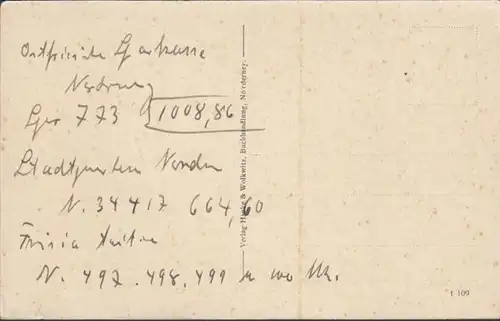 Ostfriesische Sparkasse
Norderney
773 1008,86
Stadtsparkasse Norden
N. 34417 664,60
Frisia
N. 497. 498. 499
Verlag & Wolkwitz, Buchhandlung, Norderney.
1 109